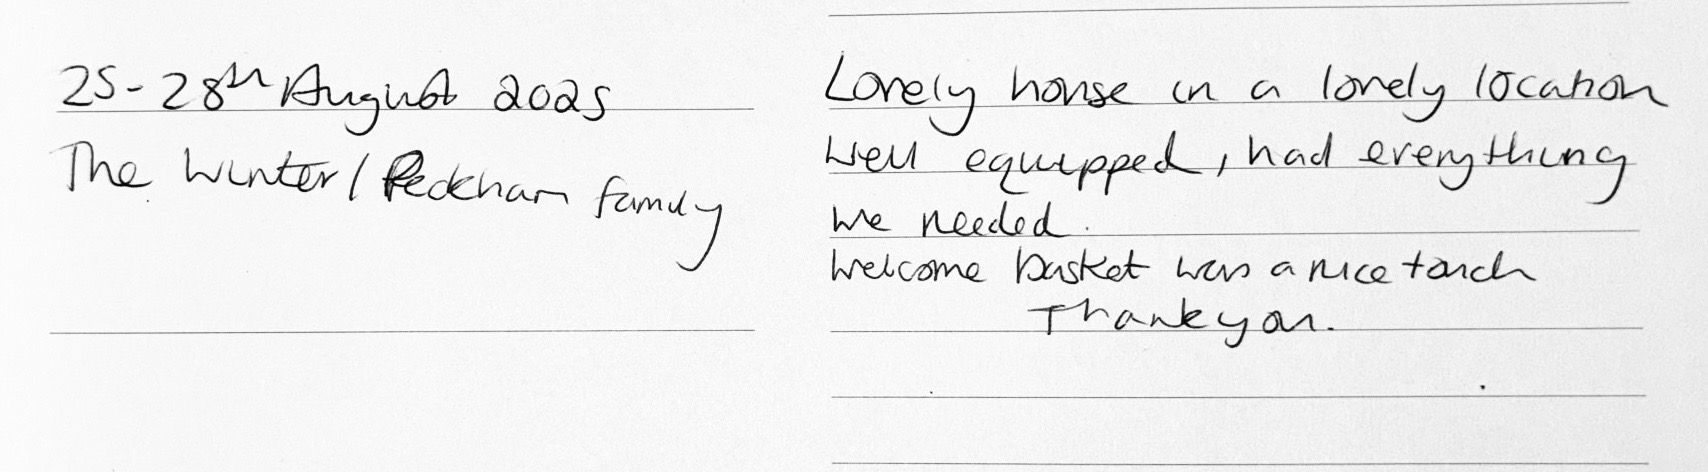 25-28th August 2025
The Winter/Peckham family
Lovely house in a lovely location
Well equipped, had everything
we needed.
Welcome basket was a nice touch
Thankyou.